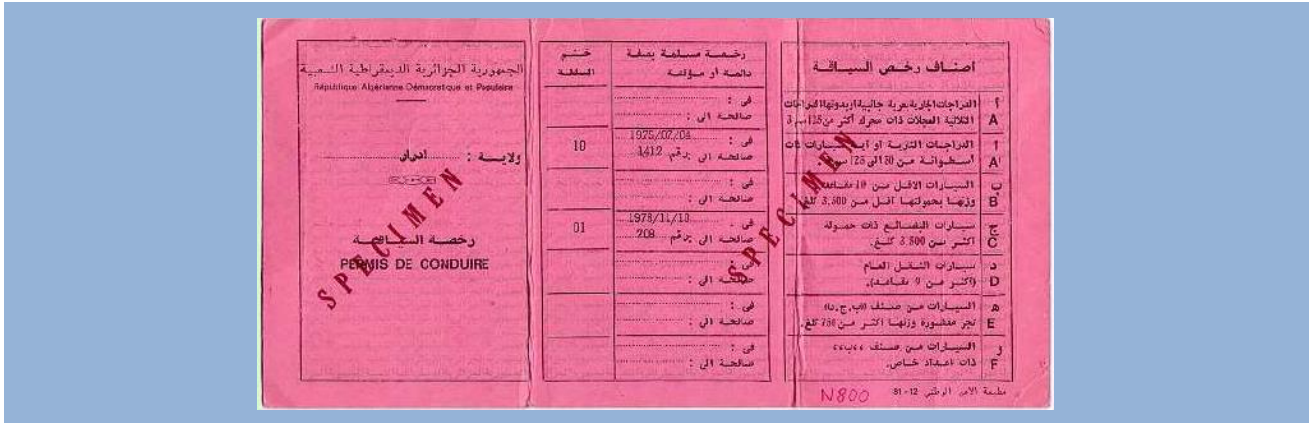 الجمهورية الجزائرية الديمقراطية الشعبية
République Algérienne Démocratique et Populaire
ولايـة : ادرار
رخصة السياقة
PERMIS DE CONDUIRE
SPECIMEN
ختم السلطة
رخصة مسلمة بصفة
دائمة أو مؤقتة
في :
صالحة الى :
10
في : 1975/07/04
صالحة الى : برقم 1412
في :
صالحة الى :
01
في : 1978/11/10
صالحة الى : برقم 208
في :
صالحة الى :
في :
صالحة الى :
في :
صالحة الى :
SPECIMEN
اصناف رخص السياقة
أ
A
الدراجات النارية بعربة جانبية او بدونها الدراجات
الثلاثية العجلات ذات محرك أكثر من 125 سم 3
أ
A'
الدراجات النارية او
أسطوانة من 80 الى 125
ب
B
السيارات الاقل من 10 مقاعد
وزنها بحمولتها اقل من 3.500 كلغ
ج
C
سيارات البضائع ذات حمولة
اكثر من 3.500 كلغ.
د
D
سيارات النقل العام
(اكثر من 9 مقاعد).
ه
E
السيارات من صنف (ب,ج,د)
تجر مقطورة وزنها اكثر من 750 كلغ.
و
F
السيارات من صنف ,,ب,,
ذات اعداد خاص.
N800
مطبعة الامن الوطني 12-81